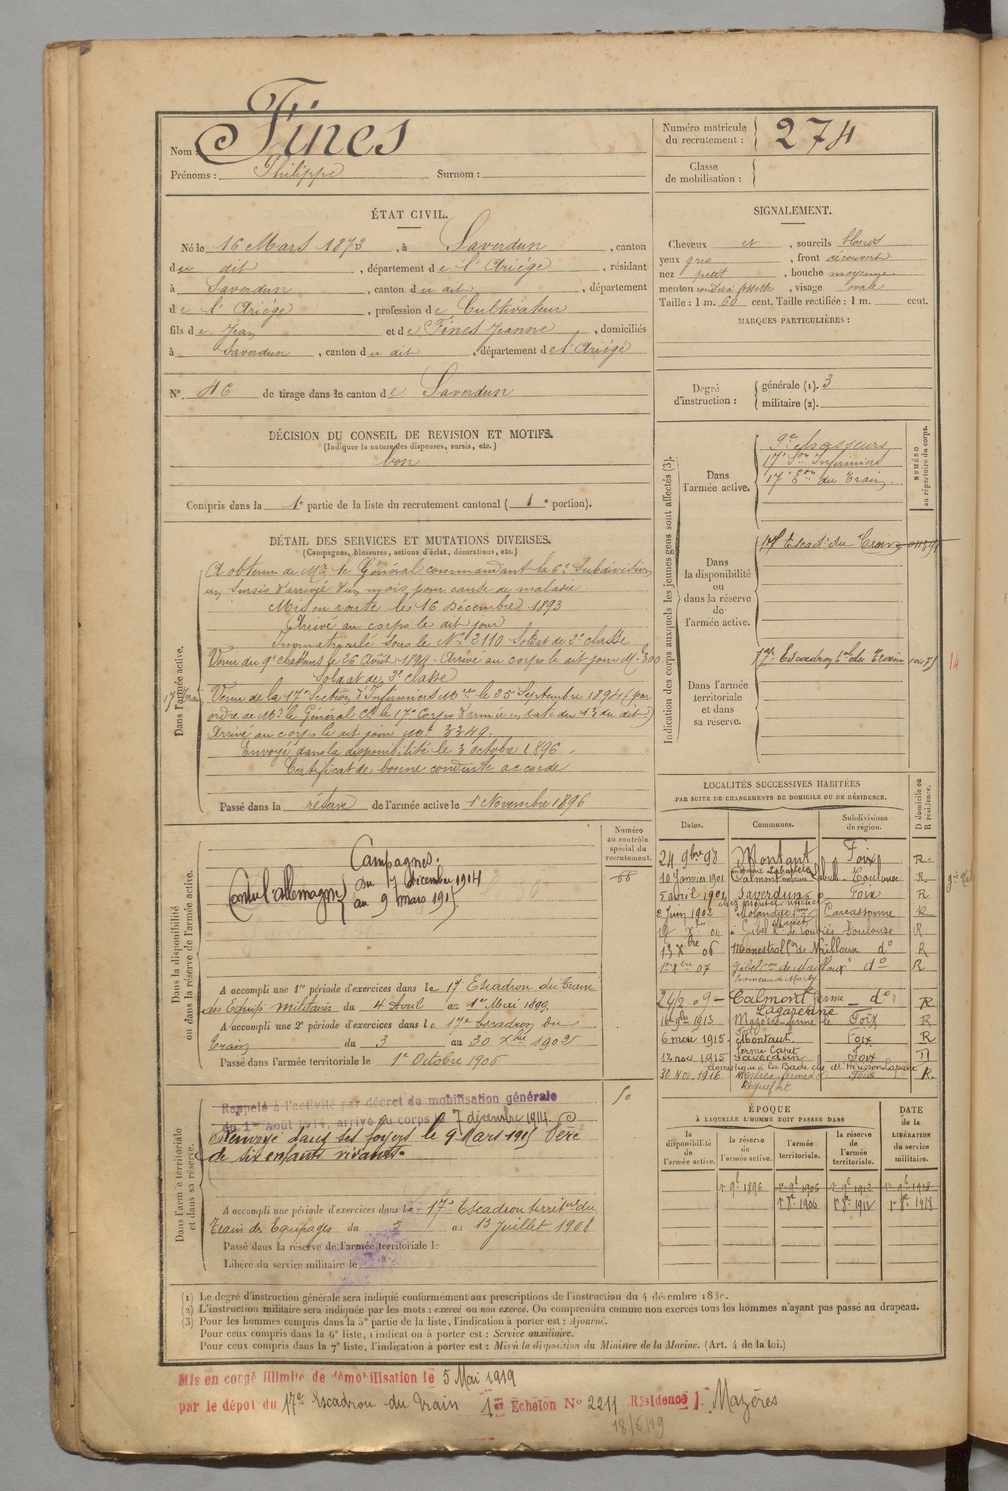 Nom : Fines
Prénoms : Philippe Surnom :
Numéro matricule du recrutement : 274
Classe de mobilisation :
ÉTAT CIVIL.
Né le 16 Mars 1873, à Saverdun, canton
du dit, département de l'Ariége, résidant
à Saverdun, canton du dit, département
de l'Ariége, profession de Cultivateur
fils de Jean et de Fines Jeanne, domiciliés
à Saverdun, canton du dit, département de l'Ariége
N° 46 de tirage dans le canton de Saverdun
DÉCISION DU CONSEIL DE REVISION ET MOTIFS.
(Indiquer la nature des dispenses, sursis, etc.)
bon
Compris dans la 1e partie de la liste du recrutement cantonal (1e portion).
SIGNALEMENT.
Cheveux et, sourcils blonds
yeux gris, front découvert
nez petit, bouche moyenne
menton rond à fossette, visage ovale
Taille : 1 m. 60 cent. Taille rectifiée : 1 m. cent.
MARQUES PARTICULIÈRES :
Degré d'instruction : générale (1). 3
militaire (2).
DÉTAIL DES SERVICES ET MUTATIONS DIVERSES.
(Campagnes, blessures, actions d'éclat, décorations, etc.)
Dans l'armée active.
A obtenu de Mr le Général commandant la 6e Subdivision
un sursis d'arrivé d'un mois pour cause de maladie.
Mis en route le 16 Décembre 1893
Arrivé au corps le dit jour
Immatriculé sous le No 2110 Soldat de 2e classe
Venu du 9e chasseurs le 26 Août 1894. Arrivé au corps le dit jour
Soldat de 2e classe
17e Train
Venu de la 17e Section d'Infirmiers le 25 Septembre 1894 (par
ordre de Mr le Général Ct le 17e Corps d'armée en date du 13 du dit)
Arrivé au corps le dit jour No 3349.
Envoyé dans la disponibilité le 3 octobre 1896.
Certificat de bonne conduite accordé
Passé dans la réserve de l'armée active le 1 Novembre 1896
Indication des corps auxquels les jeunes gens sont affectés (3).
NUMÉRO au répertoire du corps.
Dans l'armée active.
9e chasseurs
17e Son Infirmiers
17e Eon du Train
Dans la disponibilité ou dans la réserve de l'armée active.
17e Escad. du Train
Dans l'armée territoriale et dans sa réserve.
17e Escadron du Train
14
Dans la disponibilité ou dans la réserve de l'armée active.
Numéro au contrôle spécial du recrutement.
Campagnes :
Contre l'allemagne
du 7 décembre 1914
au 9 mars 1915
A accompli une 1re période d'exercices dans le 17 Escadron du Train
des Equip. militaires du 4 Avril au 1er Mai 1899.
A accompli une 2e période d'exercices dans le 17e Escadron du
Train du 3 au 30 Xbre 1902
Passé dans l'armée territoriale le 1er Octobre 1906
Dans l'armée territoriale et dans sa réserve.
50
Rappelé à l'activité par décret de mobilisation générale
du 1er Août 1914, arrivé au corps le 7 décembre 1914.
Renvoyé dans ses foyers le 9 Mars 1915 Père
de six enfants vivants.
A accompli une période d'exercices dans le 17e Escadron territrial du
Train des Equipages du 5 au 13 juillet 1908
Passé dans la réserve de l'armée territoriale le
Libéré du service militaire le
LOCALITÉS SUCCESSIVES HABITÉES
PAR SUITE DE CHANGEMENTS DE DOMICILE OU DE RÉSIDENCE.
D domicile ou R résidence.
Dates. Communes. Subdivisions de région.
24 9bre 98 Montaut Foix R.
10 janvier 1901 Calmont Toulouse R.
5 avril 1901 Saverdun Foix R
2 Juin 1902 Molandier Carcassonne R
Toulouse R
13 Xbre 06 Monestrol con de Nailloux do R
07 Gibel con de Nailloux do R
24/2 09 Calmont ferme Lagarenne do R
1913 Mazères ferme Foix R
6 mai 1915 Montaut Foix R
12 nov 1915 Saverdun Foix D
30 Nov. 1916 Mazères Foix R.
ÉPOQUE
À LAQUELLE L'HOMME DOIT PASSER DANS
DATE de la LIBÉRATION du service militaire.
la disponibilité de l'armée active. la réserve de l'armée active. l'armée territoriale. la réserve de l'armée territoriale.
1er 9bre 1896 1er 9bre 1906 1er 9bre 1912 1er 9bre 1918
1er 8bre 1906 1er 8bre 1912 1er 8bre 1918
(1) Le degré d'instruction générale sera indiqué conformément aux prescriptions de l'instruction du 4 décembre 1889.
(2) L'instruction militaire sera indiquée par les mots : exercé ou non exercé. On comprendra comme non exercés tous les hommes n'ayant pas passé au drapeau.
(3) Pour les hommes compris dans la 5e partie de la liste, l'indication à porter est : Ajourné.
Pour ceux compris dans la 6e liste, l'indication à porter est : Service auxiliaire.
Pour ceux compris dans la 7e liste, l'indication à porter est : Mis à la disposition du Ministre de la Marine. (Art. 4 de la loi.)
Mis en congé illimité de démobilisation le 5 Mai 1919
par le dépôt du 17e Escadron du Train 1er Echelon No 2211 Résidence Mazères
18/6/19